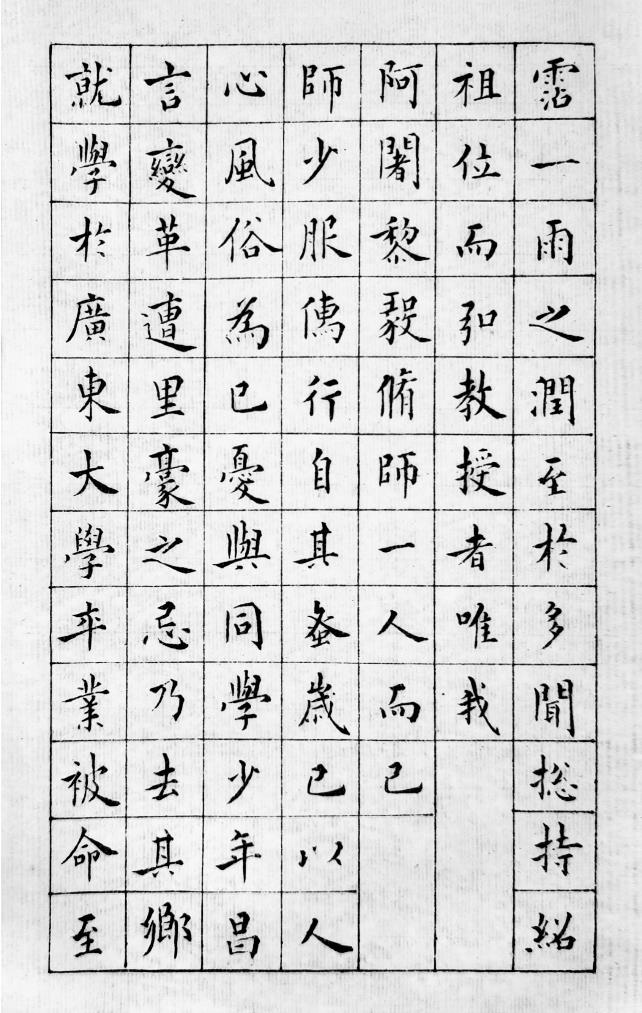 霑一雨之潤至於多聞捴持紹
祖位而弘教授者唯我
阿闍黎毅脩師一人而已
師少服儁行自其蚤歲已以人
心風俗為己憂與同學少年昌
言變革遭里豪之忌乃去其鄉
就學於廣東大學卒業被命至